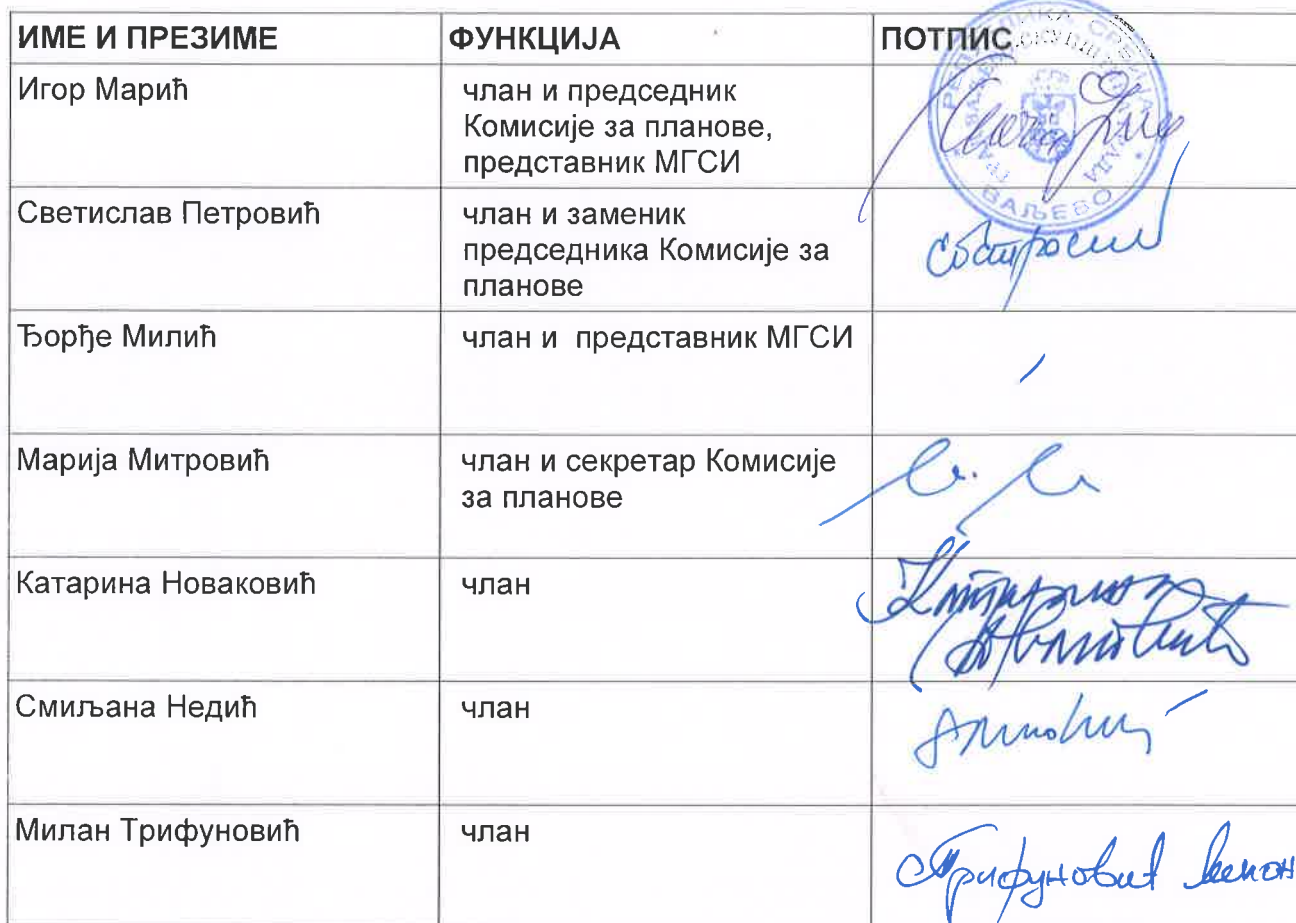 ИМЕ И ПРЕЗИМЕ ФУНКЦИЈА ПОТПИС
Игор Марић члан и председник
Комисије за планове,
представник МГСИ
РЕПУБЛИКА СРБИЈА
ВАЉЕВО
Светислав Петровић члан и заменик
председника Комисије за
планове
Ђорђе Милић члан и представник МГСИ
Марија Митровић члан и секретар Комисије
за планове
Катарина Новаковић члан Катарина
Новаковић
Смиљана Недић члан
Милан Трифуновић члан Трифуновић Милан